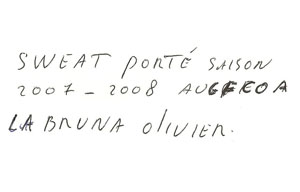 SWEAT PORTÉ SAISON
2007-2008 AU GFCOA
LABRUNA OLIVIER.